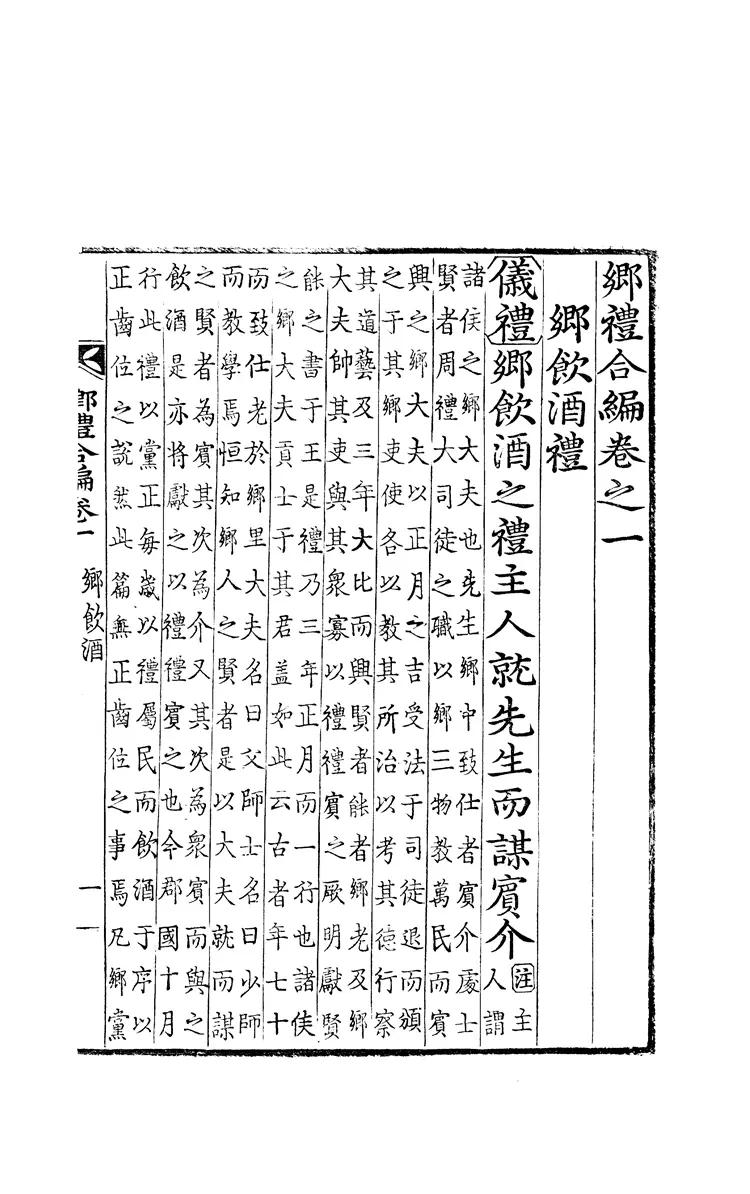 鄉禮合編卷之一
鄉飲酒禮
儀禮鄉飲酒之禮主人就先生而謀賓介
注主
人謂
諸侯之鄉大夫也先生鄉中致仕者賓介處士
賢者周禮大司徒之職以鄉三物教萬民而賓
興之鄉大夫以正月之吉受法于司徒退而頒
之于其鄉吏使各以教其所治以考其德行察
其道藝及三年大比而興賢者能者鄉老及鄉
大夫帥其吏與其眾寡以禮禮賓之厥明獻賢
能之書于王是禮乃三年正月而一行也諸侯
之鄉大夫貢士于其君盖如此云古者年七十
而致仕老於鄉里大夫名曰父師士名曰少師
而教學焉恒知鄉人之賢者是以大夫就而謀
之賢者為賓其次為介又其次為衆賓而與之
飲酒是亦將獻之以禮禮賓之也今郡國十月
行此禮以黨正每歲以禮屬民而飲酒于序以
正齒位之說然此篇無正齒位之事焉凡鄉黨
鄉禮合編卷一
鄉飲酒
一